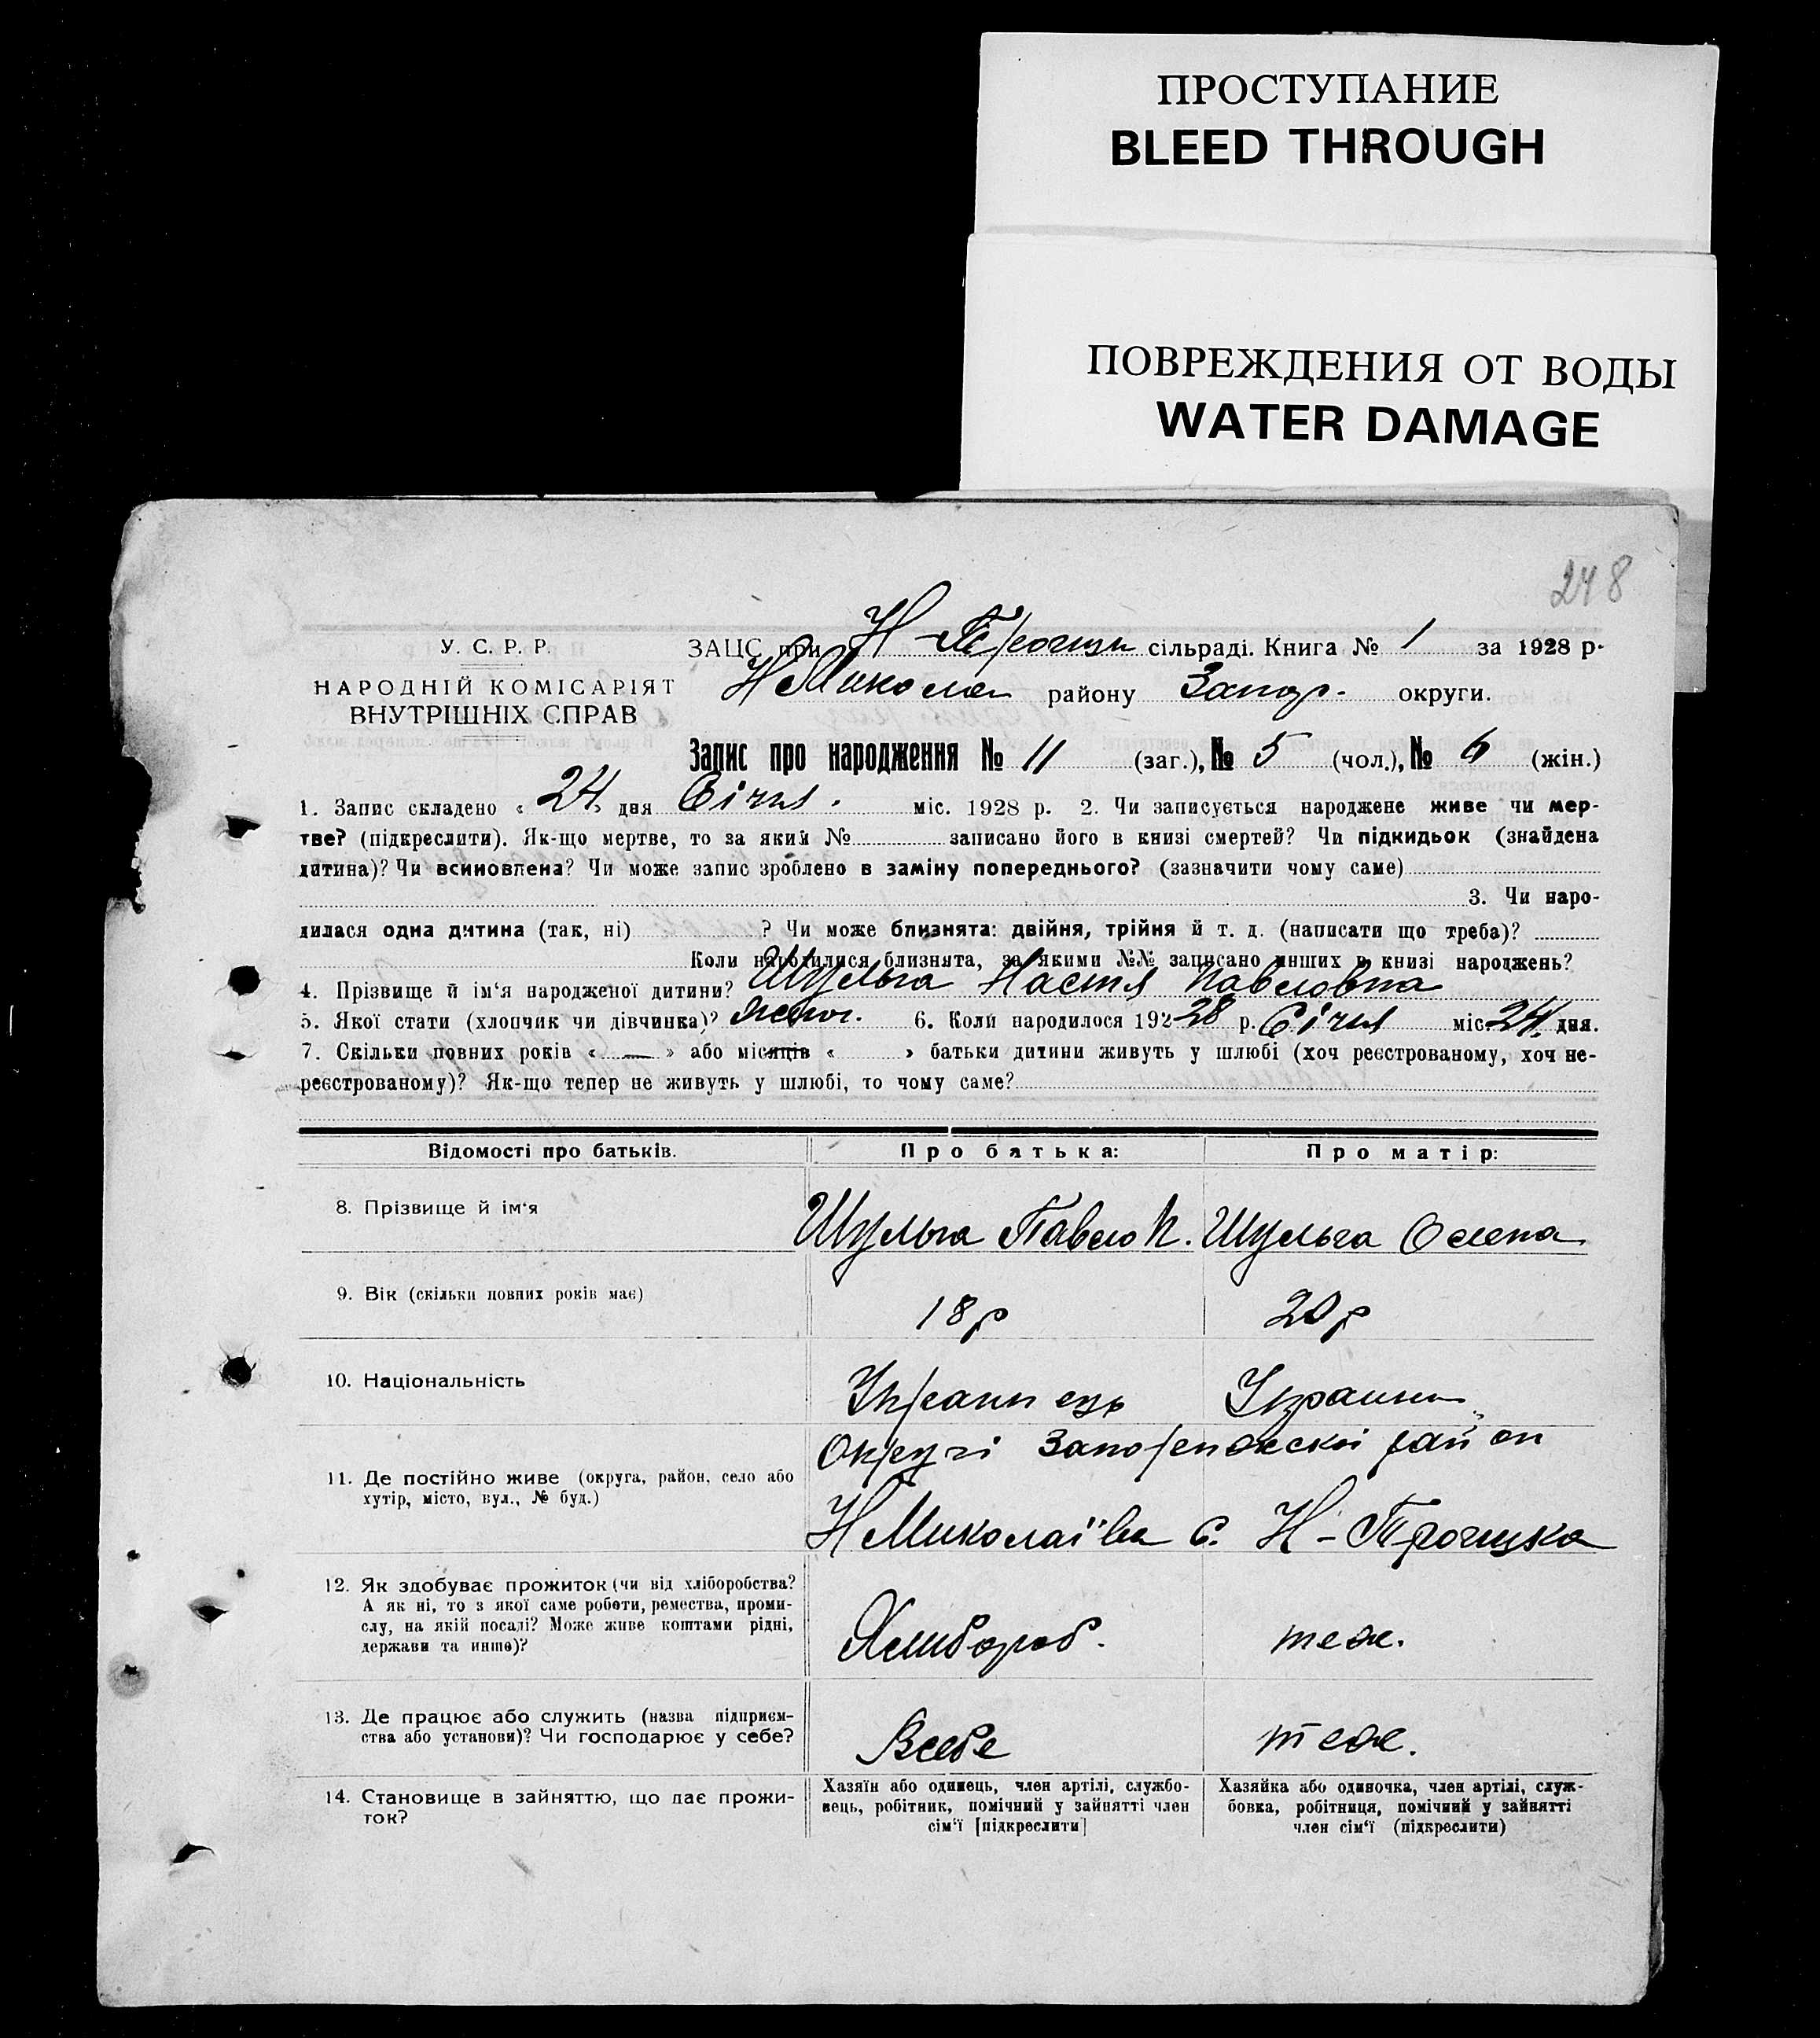 ПРОСТУПАНИЕ
BLEED THROUGH
ПОВРЕЖДЕНИЯ ОТ ВОДЫ
WATER DAMAGE
248
У. С. Р. Р.
НАРОДНІЙ КОМІСАРІЯТ
ВНУТРІШНІХ СПРАВ
ЗАЦС при Н-Троицк сільраді. Книга № 1 за 1928 р.
НМикола району Запор. округи.
Запис про народження № 11 (заг.), № 5 (чол.), № 6 (жін.)
1. Запис складено « 24 » дня Січня. міс. 1928 р. 2. Чи записується народжене живе чи мер-
тве? (підкреслити). Як-що мертве, то за яким № записано його в книзі смертей? Чи підкидьок (знайдена
дитина)? Чи всиновлена? Чи може запис зроблено в заміну попереднього? (зазначити чому саме)
3. Чи наро-
дилася одна дитина (так, ні) ? Чи може близнята: двійня, трійня й т. д. (написати що треба)?
Коли народилися близнята, за якими №№ записано инших в книзі народжень?
4. Прізвище й ім‘я народженої дитини? Шульга Настя Павловна
5. Якої стати (хлопчик чи дівчинка)? женог. 6. Коли народилося 192 28 р. Січня міс. 24 дня.
7. Скільки повних років « — » або місяців « » батьки дитини живуть у шлюбі (хоч реєстрованому, хоч не-
реєстрованому)? Як-що тепер не живуть у шлюбі, то чому саме?
Відомості про батьків.
Про батька:
Про матір:
8. Прізвище й ім‘я
Шульга Павло П.
Шульга Олена
9. Вік (скільки повних років має)
18р
20р
10. Національність
Украинець
Украинк
11. Де постійно живе (округа, район, село або
хутір, місто, вул., № буд.)
Округі Запорожскоі район
НМиколаїва С. Н-Троицка
12. Як здобуває прожиток (чи від хліборобства?
А як ні, то з якої саме роботи, ремества, проми-
слу, на якій посаді? Може живе коштами рідні,
держави та инше)?
Хлибороб.
теж.
13. Де працює або служить (назва підприєм-
ства або установи)? Чи господарює у себе?
Всебе
теж.
14. Становище в зайняттю, що дає прожи-
ток?
Хазяїн або одинець, член артілі, службо-
вець, робітник, помічний у зайнятті член
сім‘ї [підкреслити]
Хазяйка або одиночка, член артілі, служ-
бовка, робітниця, помічний у зайнятті
член сім‘ї (підкреслити)